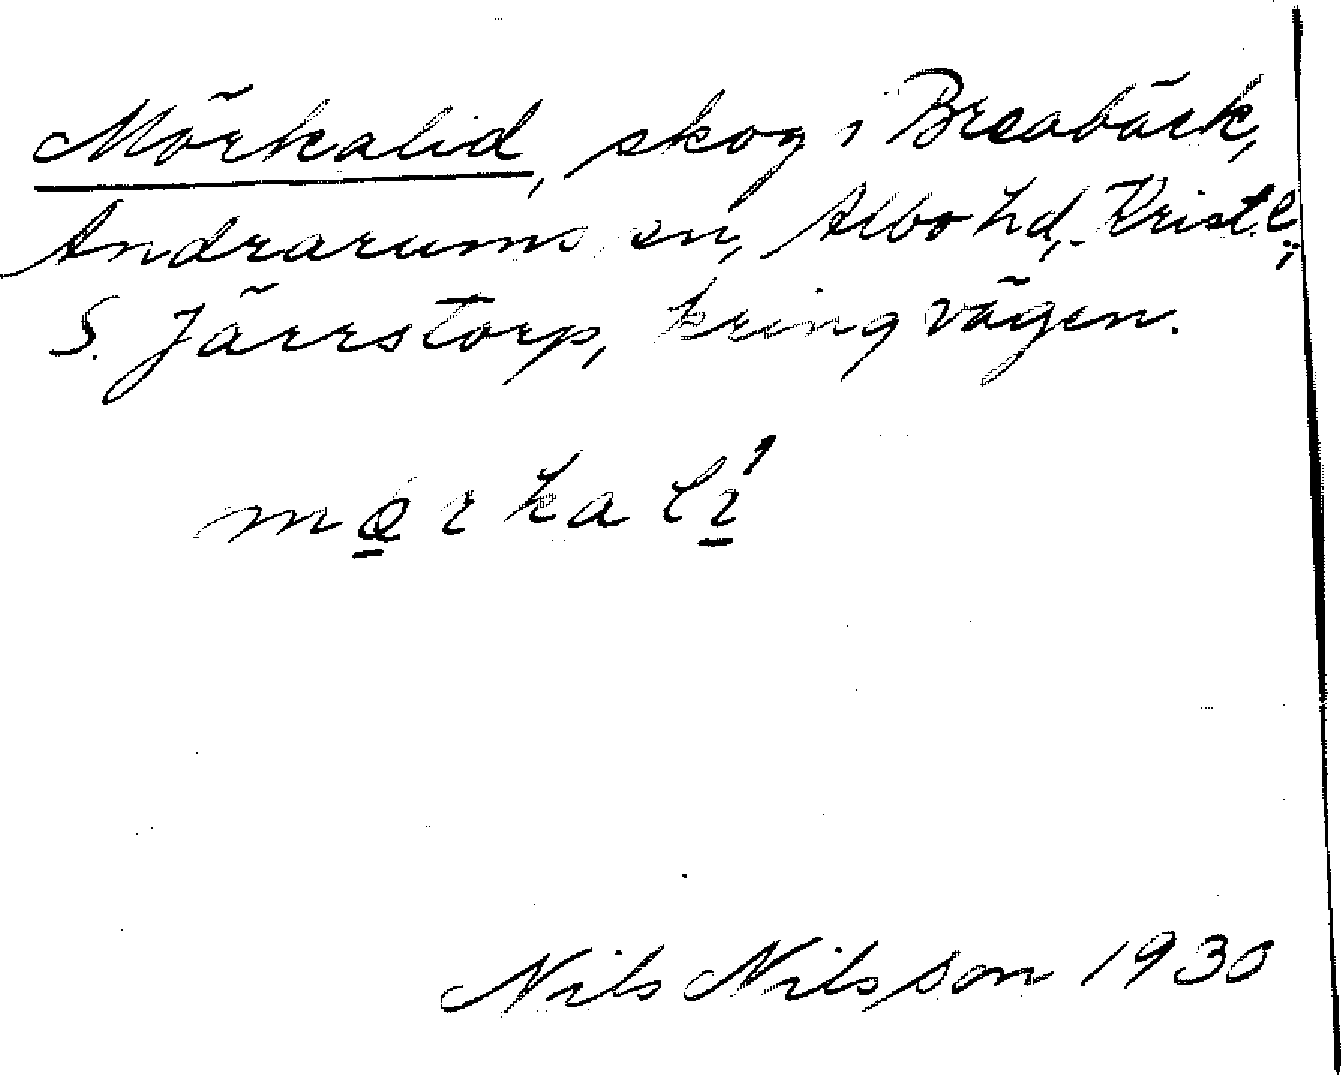 Mörkalid, skog i Breabäck,
Andrarums sn, Albo hd, Krist.l.;
S. Järrstorp, kring vägen.
mörkalí
Nils Nilsson 1930